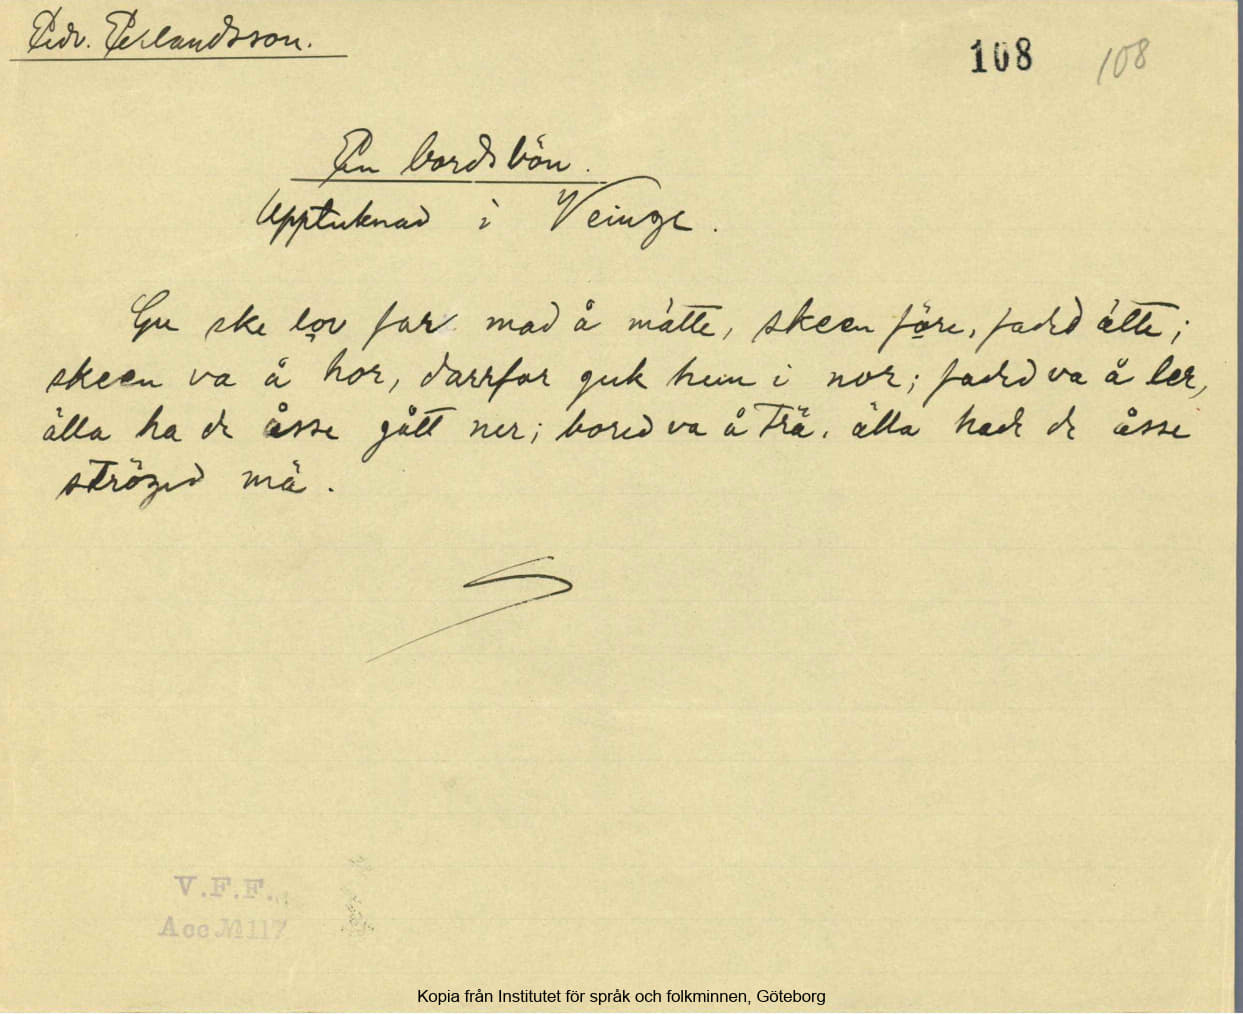 Edv. Erlandsson.
108 108
En bordsbön.
Upptecknad i Veinge.
Gu ske lov far mad å mätte, skeen före, faded ätte;
skeen va å hor, darrfor guk hun i nor; faded va å ler,
älla ha de åsse gått ner; bored va å trä, älla hade de åsse
ströged mä.
V.F.F.
Acc № 117
Kopia från Institutet för språk och folkminnen, Göteborg